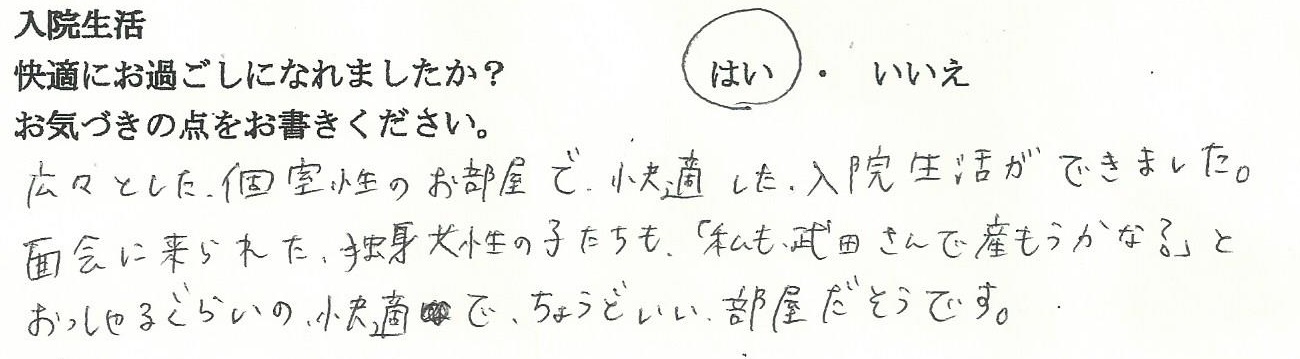 入院生活
快適にお過ごしになれましたか？ はい ・ いいえ
お気づきの点をお書きください。
広々とした、個室性のお部屋で、快適した、入院生活ができました。
面会に来られた、独身女性の子たちも、「私も、武田さんで産もうかな？」と
おっしゃるぐらいの、快適で、ちょうどいい、部屋だそうです。